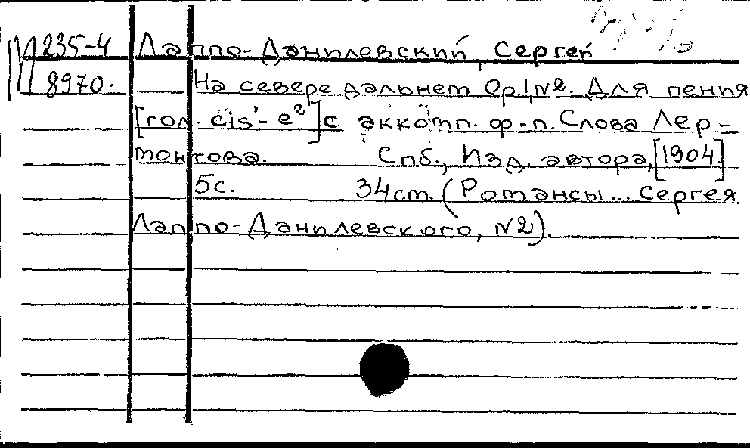 М 235-4 Лаппо-Данилевский, Сергей
8970. На севере дальнем Ор.1, №2. Для пения
[гол. cis¹-e²] с аккомп. ф-п. Слова Лер-
монтова. Спб., Изд. автора, [1904]
5с. 34ст. (Романсы... Сергея
Лаппо-Данилевского, №2).